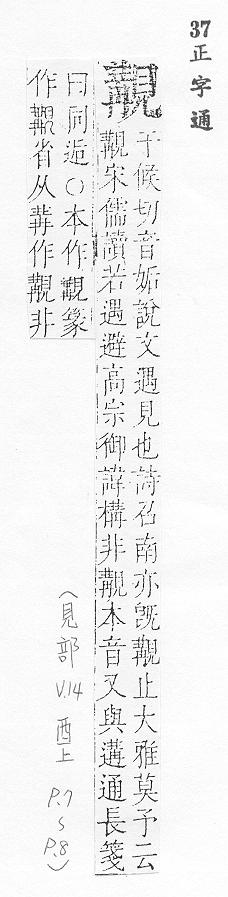 37正字通
覯
干候切音姤說文遇見也詩召南亦旣覯止大雅莫予云
覯宋儒讀若遇避高宗御諱構非覯本音又與遘通長箋
曰同逅○本作覯篆
作覯省从冓作覯非
(見部 V.14 酉上 P.7~P.8)